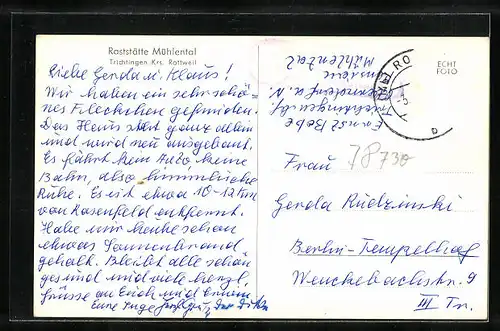 Raststätte Mühlental
Trichtingen, Krs. Rottweil
Liebe Gerda u. Klaus!
Wir haben ein sehr schö-
nes Fleckchen gefunden.
Das Haus steht ganz allein
und wird neu ausgebaut.
Es fährt kein Auto keine
Bahn, also himmlische
Ruhe. Es ist etwa 10-12 km
von Rosenfeld entfernt.
Habe mir heute schon
etwas Sonnenbrand
geholt. Bleibt alle schön
gesund und viele herzl.
Grüsse an Euch und
Eure Inge
ECHT
FOTO
Ernst
Trichtingen
Mühlental
RO
78730
Frau
Gerda Rudzinski
Berlin-Tempelhof
Wenckebachstr. 9
III Tr.